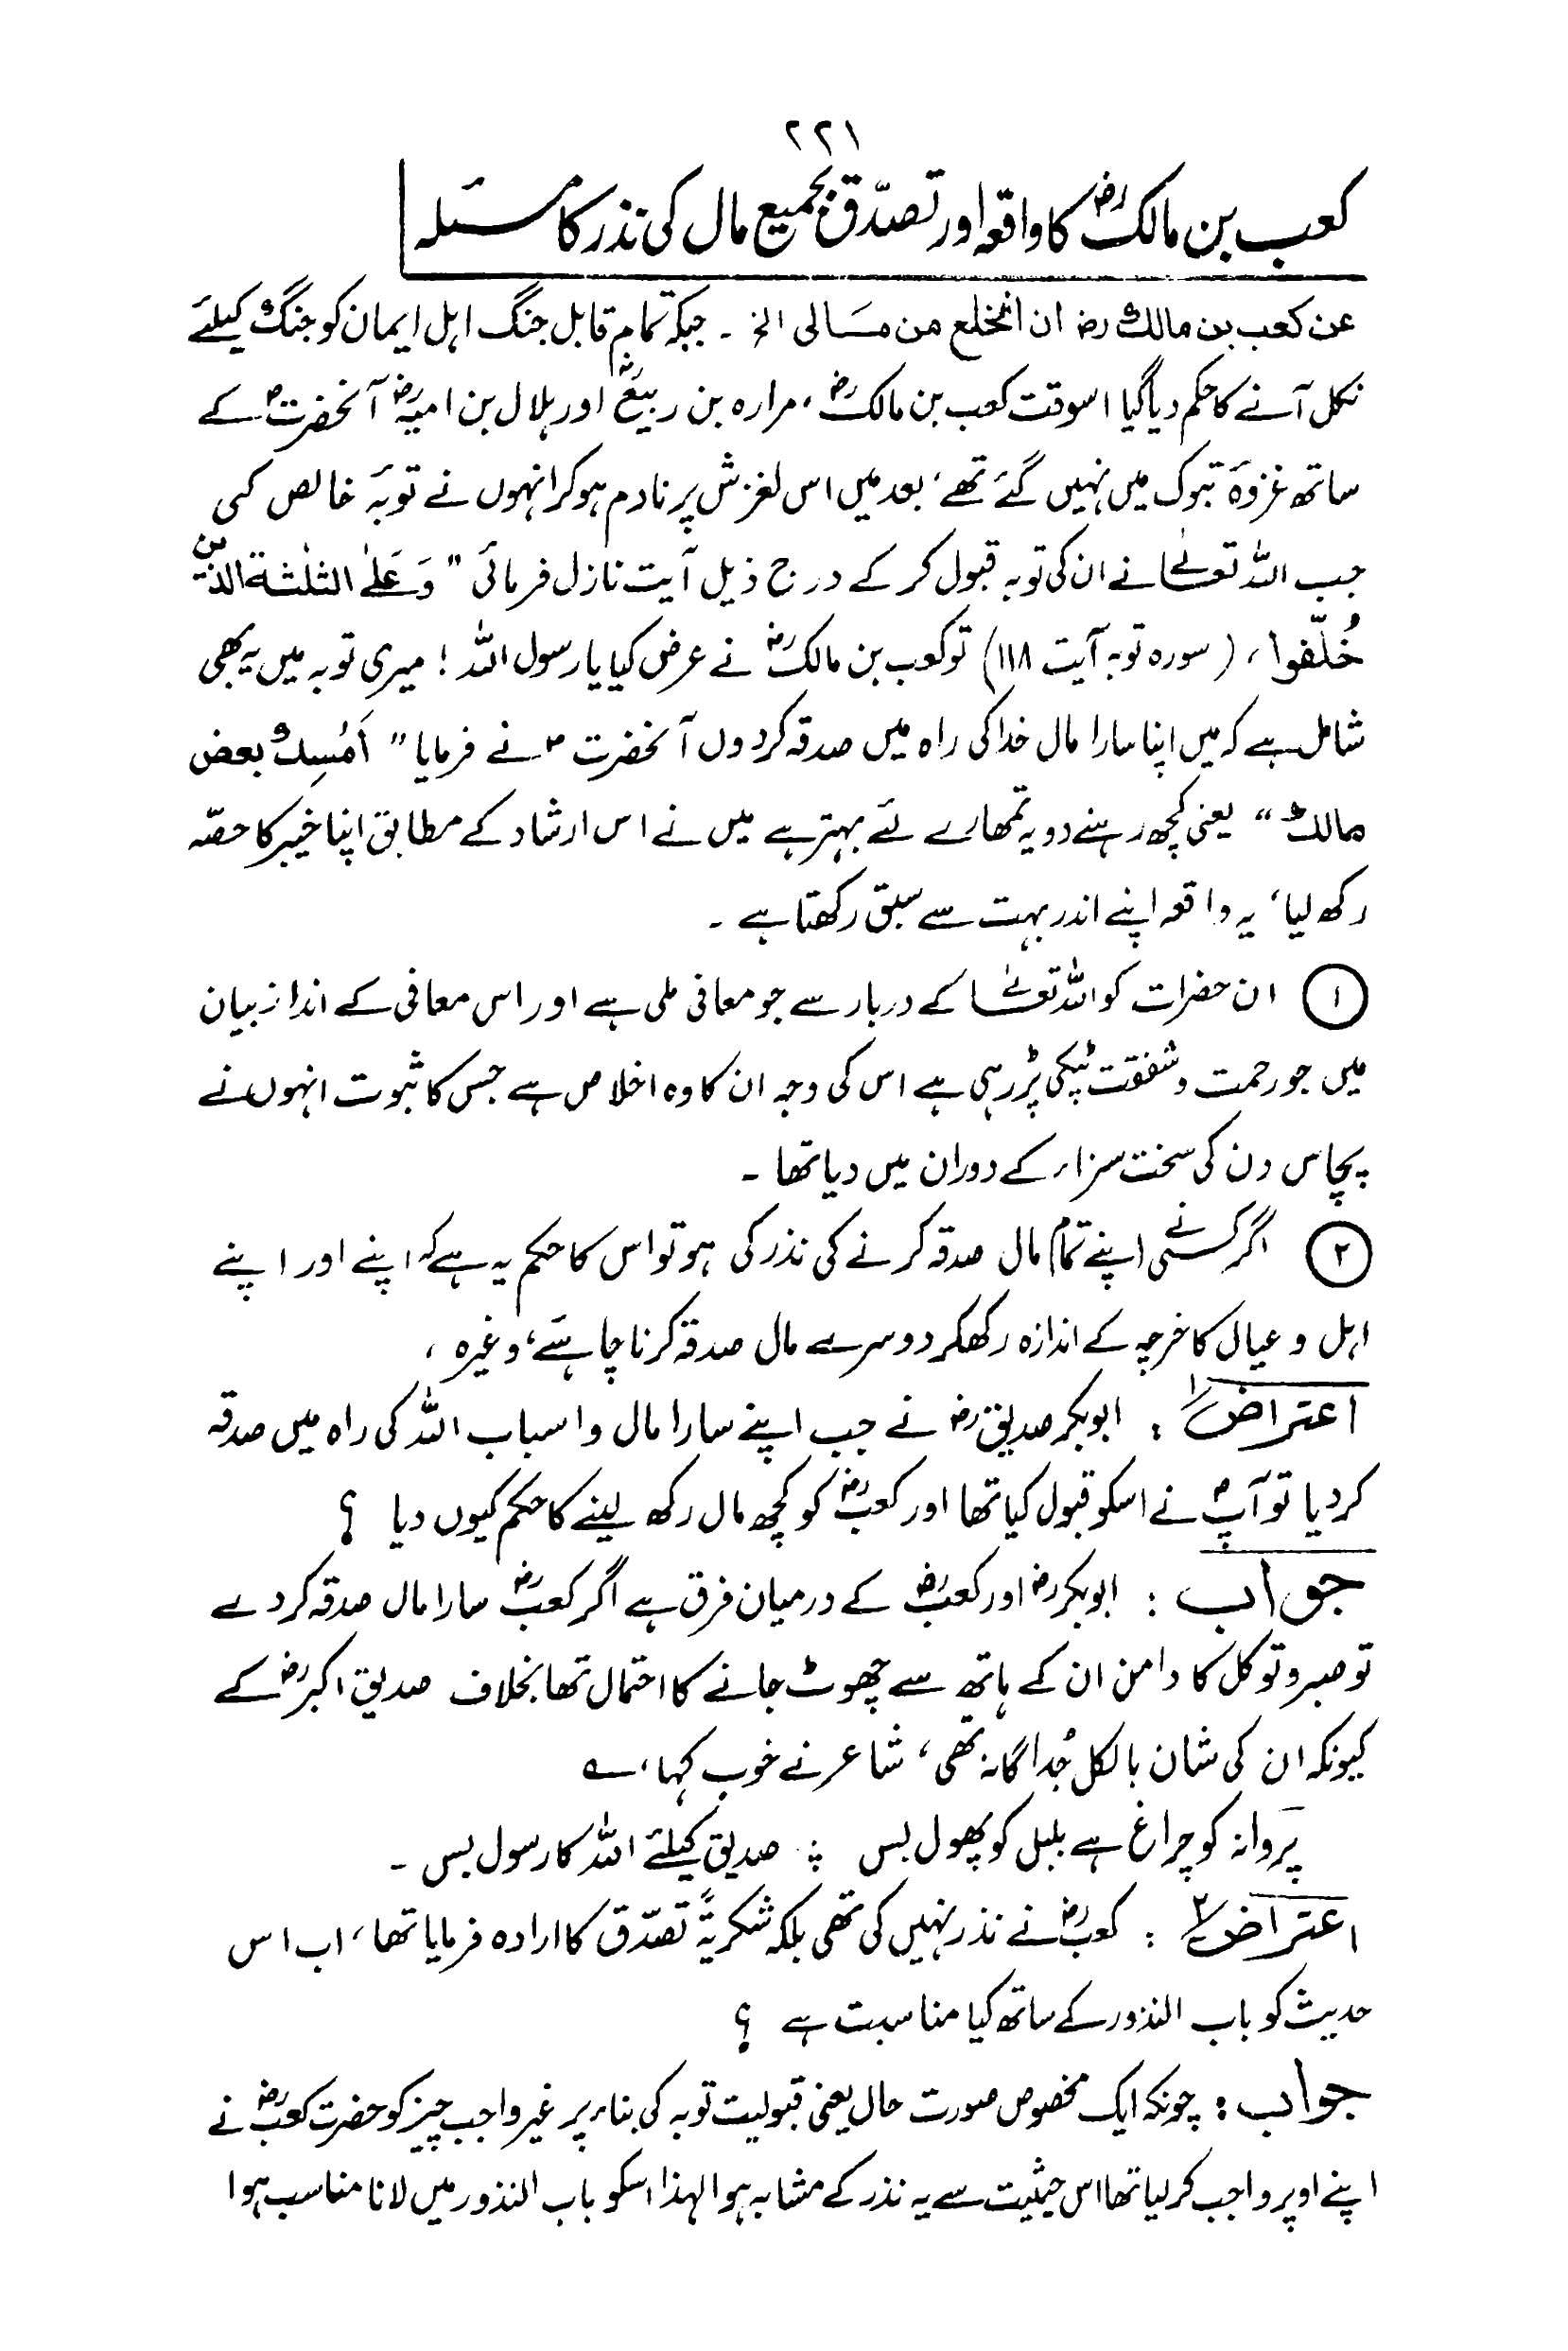 ۲۲۱
کعب بن مالکؓ کا واقعہ اور تصدّق بجمیع مال کی نذر کا مسئلہ
عن کعب بن مالك رض ان انخلع من مسالی الخ ۔ جبکہ تمام قابل جنگ اہل ایمان کو جنگ کیلئے
نکل آنے کا حکم دیا گیا اسوقت کعب بن مالکؓ، مرارہ بن ربیعؓ اور ہلال بن امیہؓ آنحضرتؐ کے
ساتھ غزوۂ تبوک میں نہیں گئے تھے، بعد میں اس لغزش پر نادم ہو کر انہوں نے توبۂ خالص کی
جب اللہ تعالےٰ نے ان کی توبہ قبول کر کے درج ذیل آیت نازل فرمائی " وَعَلَی الثلٰثة الذین
خُلّفوا، ( سورہ توبہ آیت ۱۱۸) تو کعب بن مالکؓ نے عرض کیا یا رسول اللہ ! میری توبہ میں یہ بھی
شامل ہے کہ میں اپنا سارا مال خدا کی راہ میں صدقہ کر دوں آنحضرتؐ نے فرمایا " اَمْسِك بعض
مالك " یعنی کچھ رہنے دو یہ تمھارے لئے بہتر ہے میں نے اس ارشاد کے مطابق اپنا خیبر کا حصّہ
رکھ لیا، یہ واقعہ اپنے اندر بہت سے سبق رکھتا ہے ۔
۱ ان حضرات کو اللہ تعالےٰ کے دربار سے جو معافی ملی ہے اور اس معافی کے انداز بیان
میں جو رحمت و شفقت ٹپکی پڑ رہی ہے اس کی وجہ ان کا وہ اخلاص ہے جس کا ثبوت انہوں نے
پچاس دن کی سخت سزاء کے دوران میں دیا تھا ۔
۲ اگر کسی نے اپنے تمام مال صدقہ کرنے کی نذر کی ہو تو اس کا حکم یہ ہے کہ اپنے اور اپنے
اہل و عیال کا خرچہ کے اندازہ رکھکر دوسرے مال صدقہ کرنا چاہئے، وغیرہ ،
اعتراض ۱ : ابوبکر صدیق رض نے جب اپنے سارا مال و اسباب اللہ کی راہ میں صدقہ
کر دیا تو آپؐ نے اسکو قبول کیا تھا اور کعبؓ کو کچھ مال رکھ لینے کا حکم کیوں دیا ؟
جواب : ابوبکرؓ اور کعبؓ کے درمیان فرق ہے اگر کعبؓ سارا مال صدقہ کر دے
تو صبر و توکل کا دامن ان کے ہاتھ سے چھوٹ جانے کا احتمال تھا بخلاف صدیق اکبرؓ کے
کیونکہ ان کی شان بالکل جُداگانہ تھی، شاعر نے خوب کہا، ؎
پروانہ کو چراغ ہے بلبل کو پھول بس ؞ صدیق کیلئے اللہ کا رسول بس ۔
اعتراض ۲ : کعبؓ نے نذر نہیں کی تھی بلکہ شکریۃً تصدّق کا ارادہ فرمایا تھا، اب اس
حدیث کو باب النذور کے ساتھ کیا مناسبت ہے ؟
جواب : چونکہ ایک مخصوص صورت حال یعنی قبولیت توبہ کی بناء پر غیر واجب چیز کو حضرت کعبؓ نے
اپنے اوپر واجب کر لیا تھا اس حیثیت سے یہ نذر کے مشابہ ہوا لہذا اسکو باب النذور میں لانا مناسب ہوا